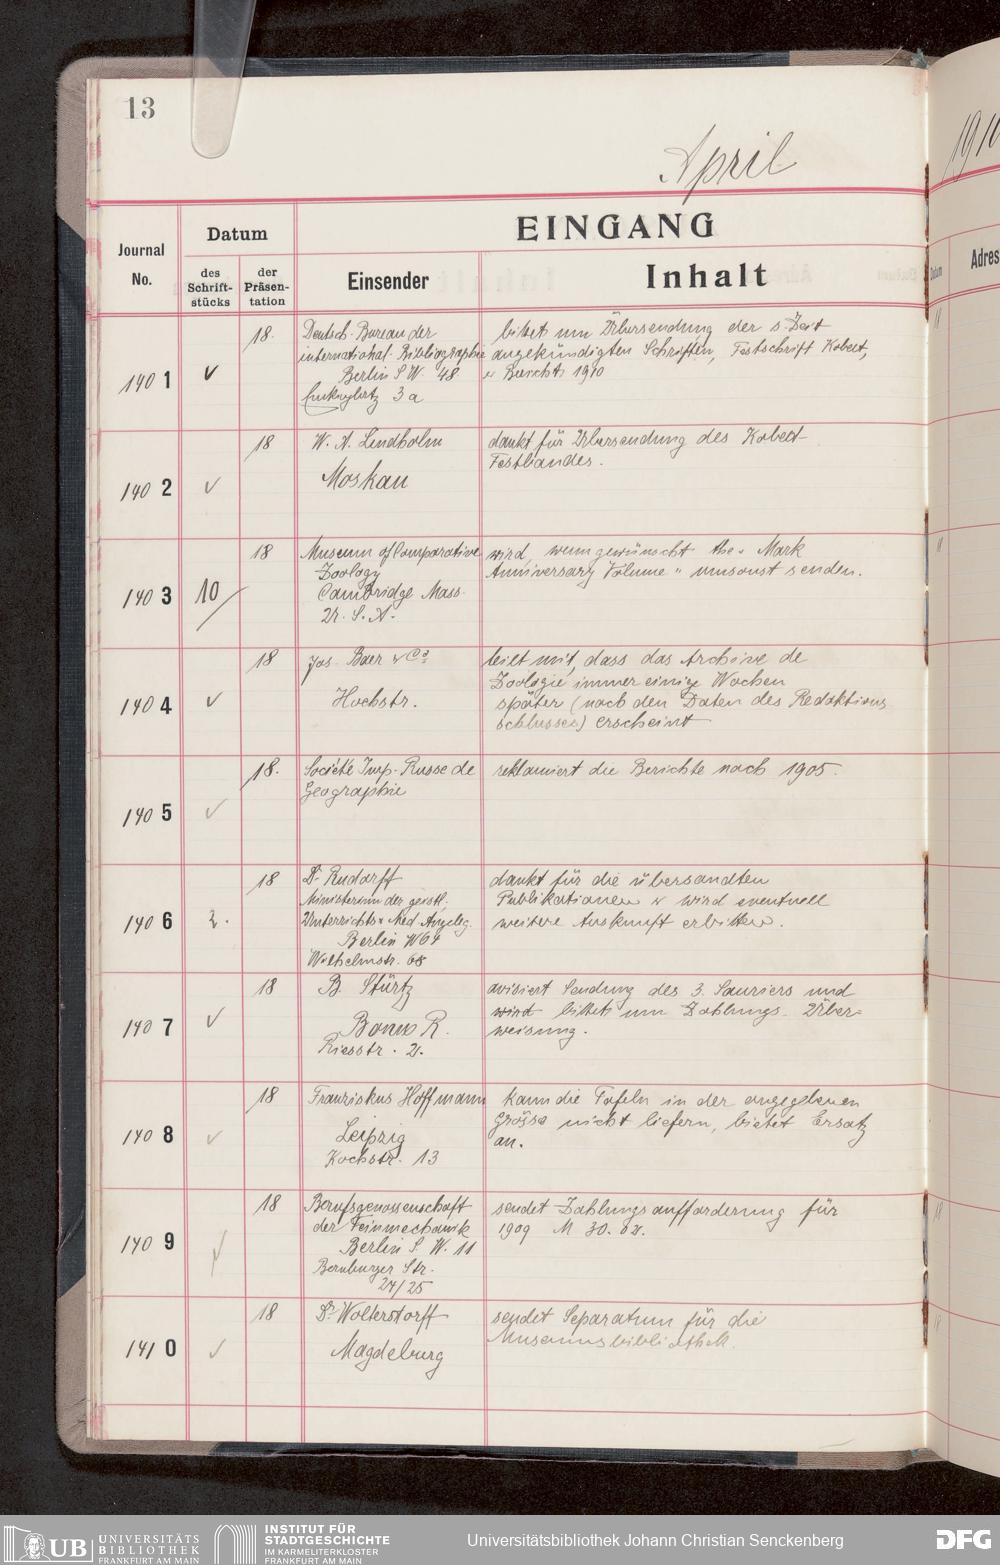 13
April
1910
EINGANG
Journal No.
Datum
des Schrift-stücks
der Präsen-tation
Einsender
Inhalt
Datum
Adres
1401
18.
Deutsch. Bureau der
international. Bibliographie
Berlin S W. 48
Enckeplatz 3a
bittet um Übersendung der s. Zeit
angekündigten Schriften, Festschrift Kobelt,
u Bericht 1910
1402
18
W. A. Lindholm
Moskau
dankt für Übersendung des Kobelt-
Festbandes.
1403
10
18
Museum of Comparative
Zoology
Cambridge Mass.
U. S. A.
wird, wenn gewünscht the „ Mark
Anniversary Volume " umsonst senden.
1404
18
Jos. Baer & Co
Hochstr.
teilt mit, dass das Archive de
Zoologie immer einige Wochen
später (nach den Daten des Redaktions
schlusses) erscheint
1405
18.
Société Imp. Russe de
Geographie
reklamiert die Berichte nach 1905.
1406
2.
18
Dr. Rudorff
Ministerium der geistl.
Unterrichts u Med. Angeleg.
Berlin W 64
Wilhelmstr. 68
dankt für die übersandten
Publikationen u wird eventuell
weitere Auskunft erbitten.
1407
18
B. Stürtz
Bonn R.
Riesstr. 2.
avisiert Sendung des 3. Sauriers und
wird bittet um Zahlungs-Über-
weisung.
1408
18
Franziskus Hoffmann
Leipzig
Kochstr. 13
kann die Tafeln in der angegebenen
Grösse nicht liefern, bietet Ersatz
an.
1409
18
Berufsgenossenschaft
der Feinmechanik
Berlin S. W. 11
Bernburger Str.
24/25
sendet Zahlungsaufforderung für
1909 M 30.02.
1410
18
Dr. Wolterstorff
Magdeburg
sendet Separatum für die
Museumsbibliothek.
UB UNIVERSITÄTS BIBLIOTHEK FRANKFURT AM MAIN
INSTITUT FÜR STADTGESCHICHTE IM KARMELITERKLOSTER FRANKFURT AM MAIN
Universitätsbibliothek Johann Christian Senckenberg
DFG